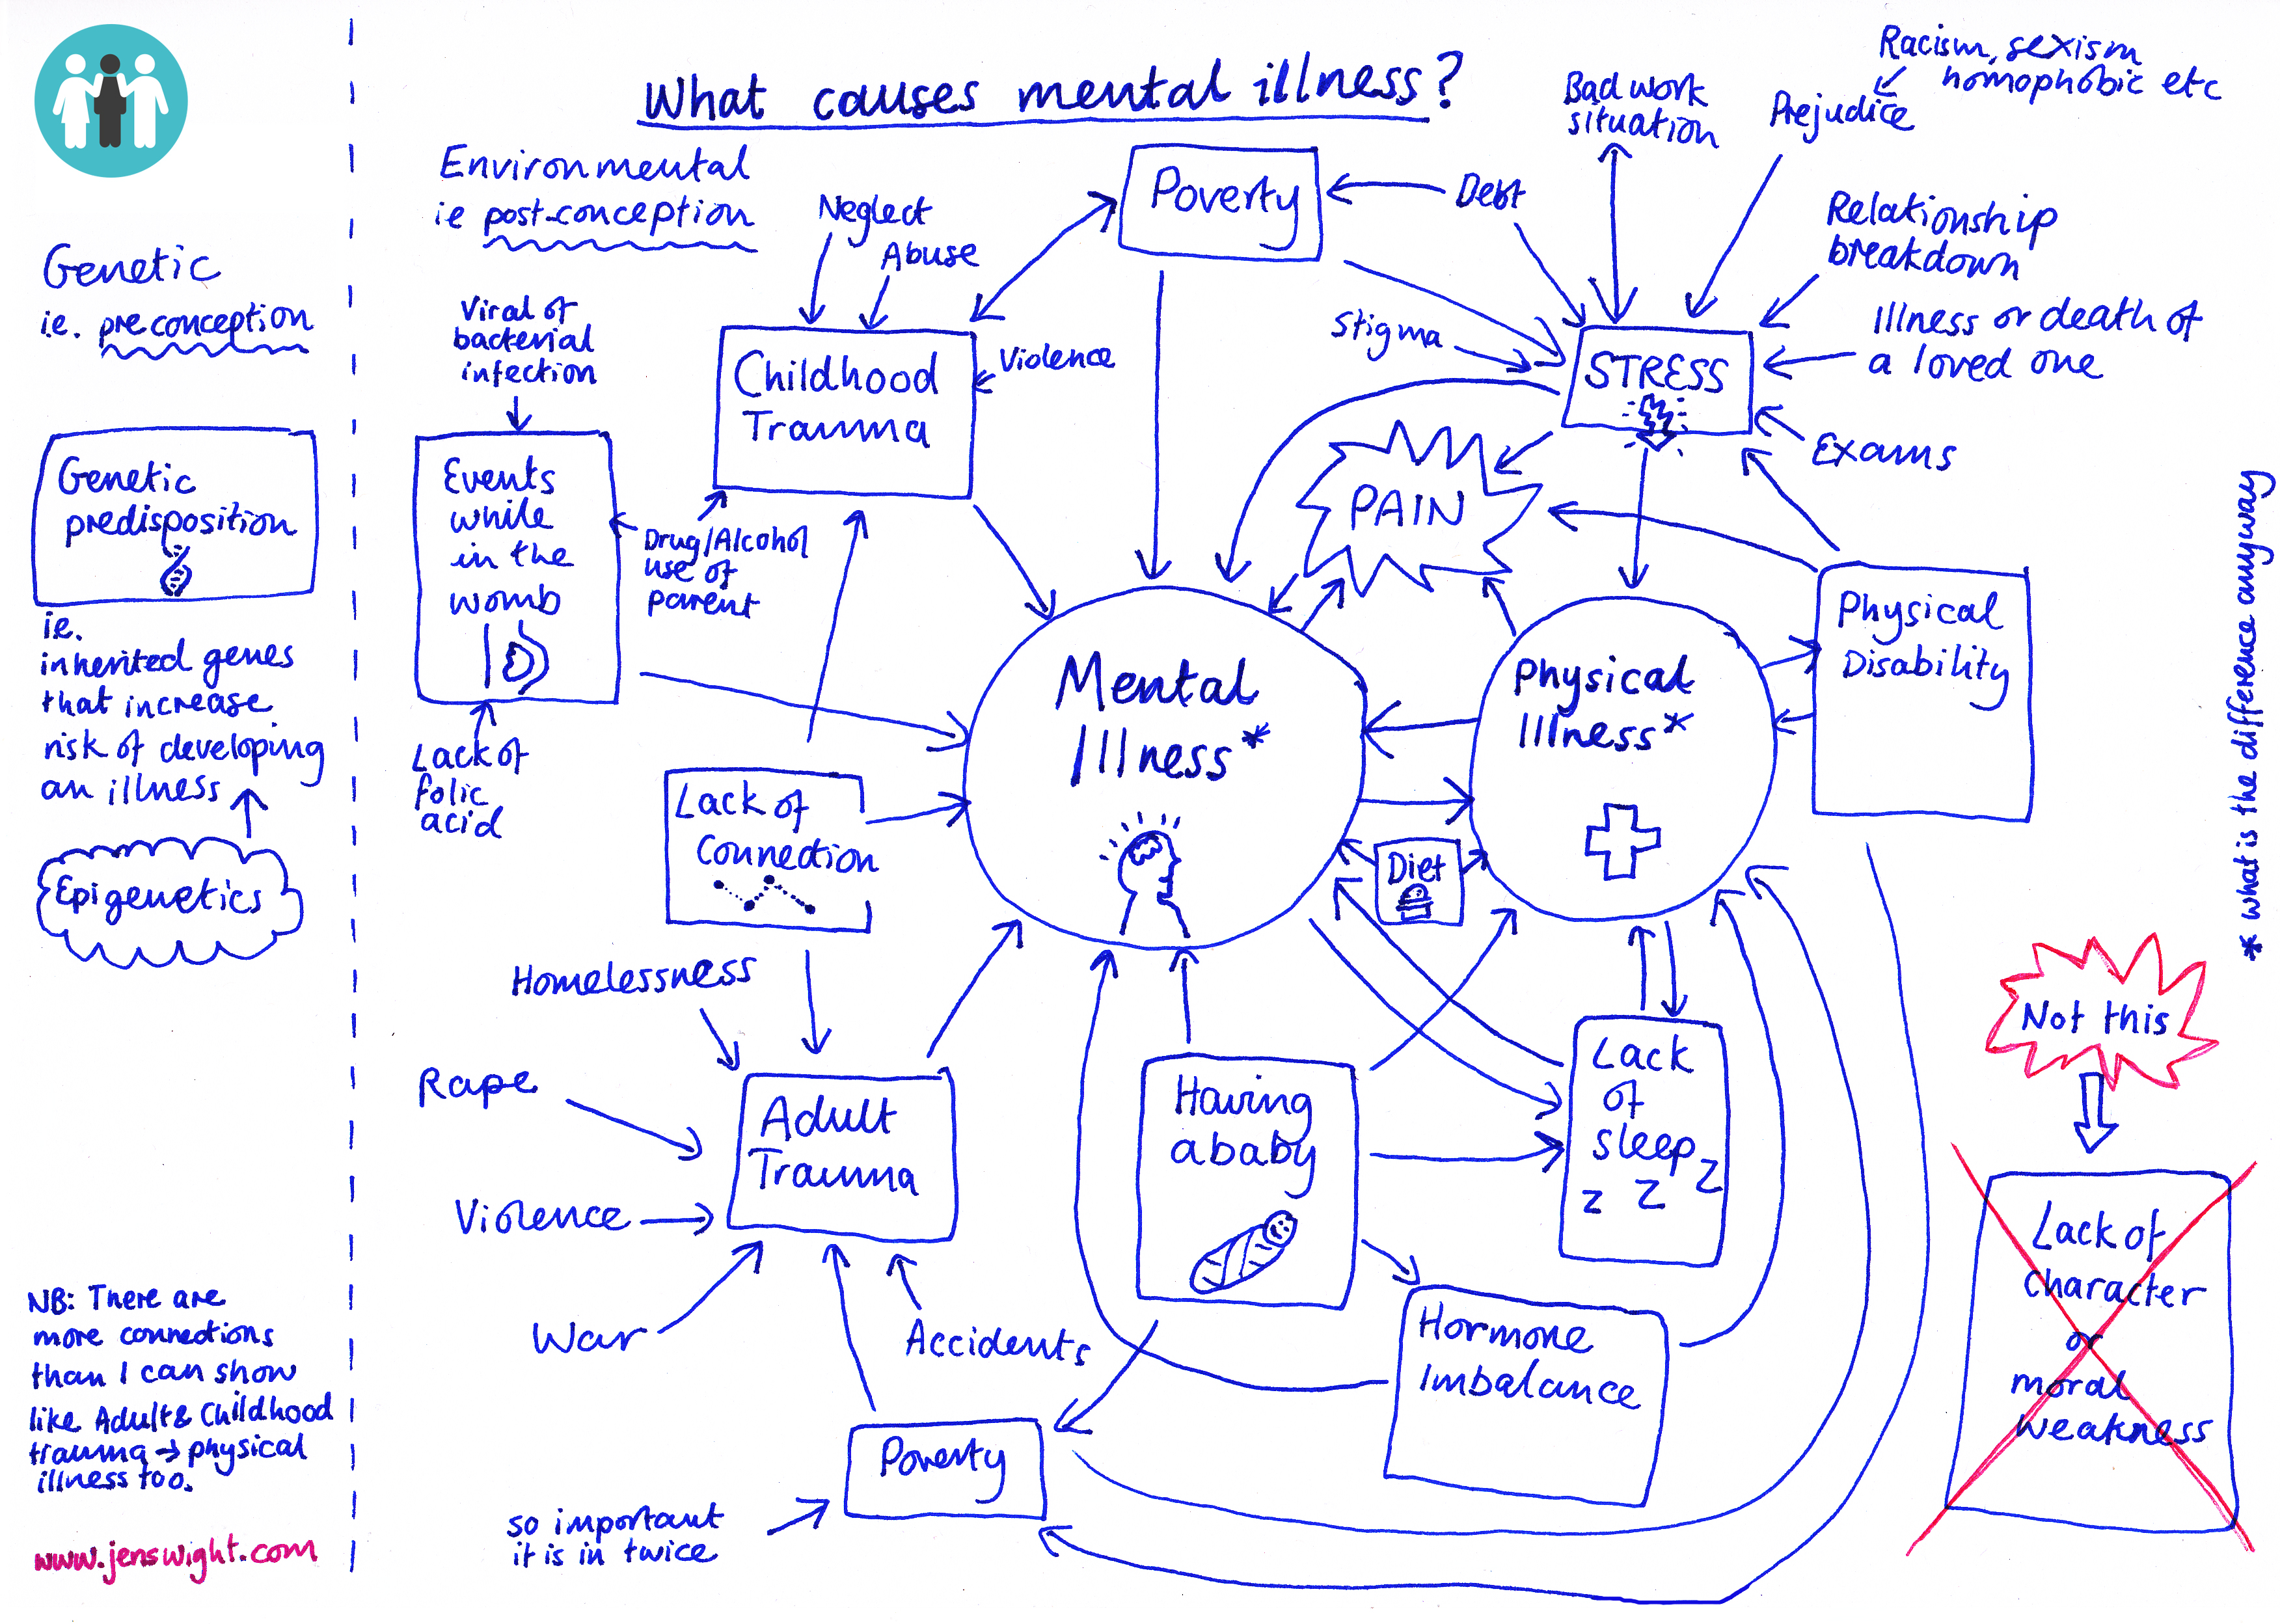 What causes mental illness?
Genetic
i.e. preconception
Genetic
predisposition
ie.
inherited genes
that increase
risk of developing
an illness
Epigenetics
NB: There are
more connections
than I can show
like Adult & Childhood
trauma → physical
illness too.
www.jenswight.com
Environmental
ie post-conception
Neglect
Abuse
Viral of
bacterial
infection
Childhood
Trauma
Violence
Events
while
in the
womb
Drug/Alcohol
use of
parent
Lack of
folic
acid
Poverty
Debt
Stigma
Bad work
situation
Racism, sexism
homophobic etc
Prejudice
Relationship
breakdown
Illness or death of
a loved one
STRESS
Exams
PAIN
Mental
Illness*
Physical
Illness*
Physical
Disability
* what is the difference anyway
Diet
Lack of
Connection
Homelessness
Rape
Adult
Trauma
Violence
War
Accidents
Having
a baby
Lack
of
sleep
z z z
Hormone
Imbalance
Poverty
so important
it is in twice
Not this
Lack of
character
or
moral
weakness